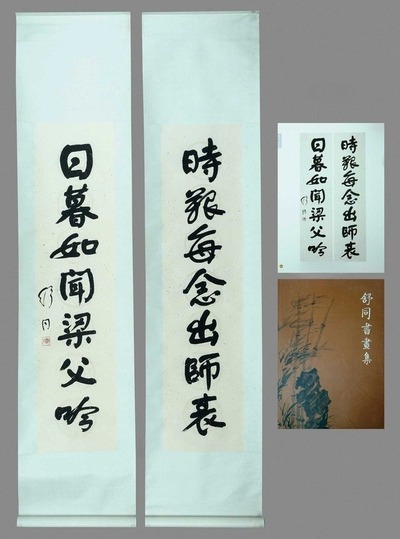 時艱每念出師表
日暮如聞梁父吟
舒同
時艱每念出師表
日暮如聞梁父吟
舒同
舒同書畫集